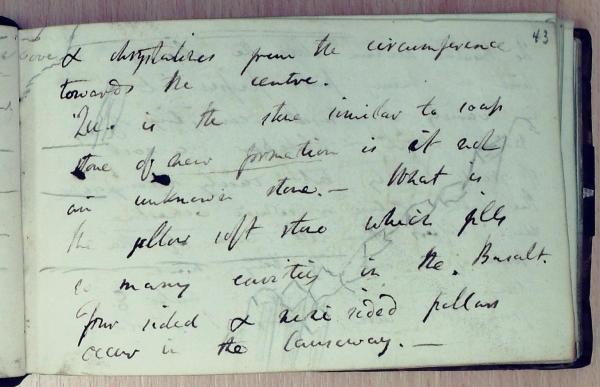 43
& chrystalizes from the circumference
towards the centre.
Qu. is the stone similar to soap
stone of new formation is it not
an unknown stone. — What is
the yellow soft stone which fills
so many cavities in the Basalt.
Four sided & nine sided pillars
occur in the Causeway. —